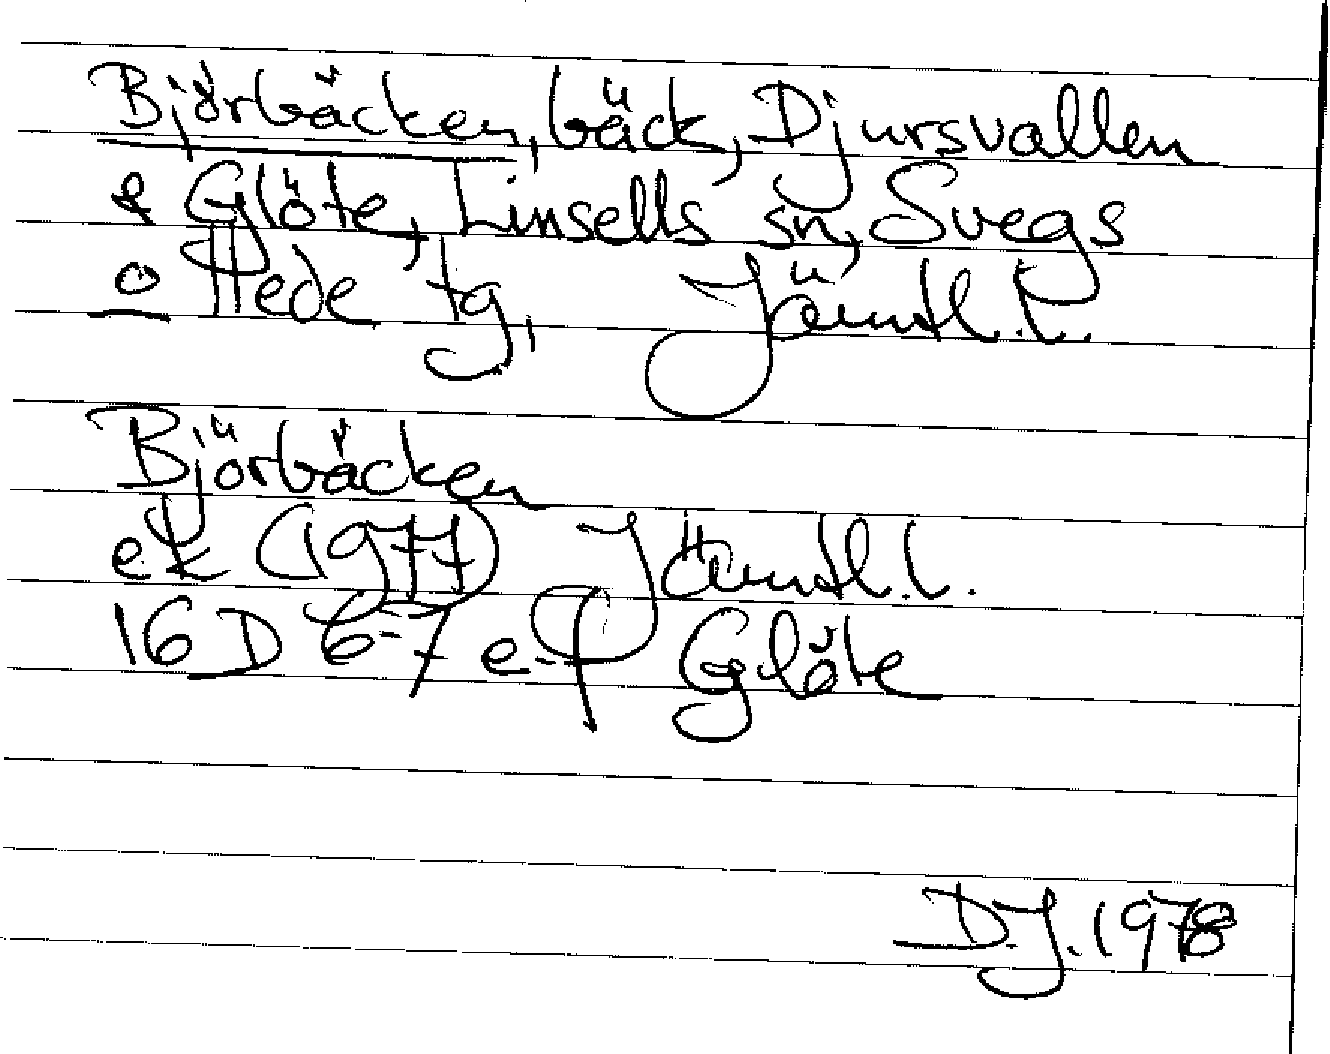 Björbäcken, bäck, Djursvallen
& Glöte, Linsells sn, Svegs
o Hede tg, Jämtl.l.
Björbäcken
ek (1977) Jämtl.l.
16 D 6-7 e-f Glöte
D.J. 1978